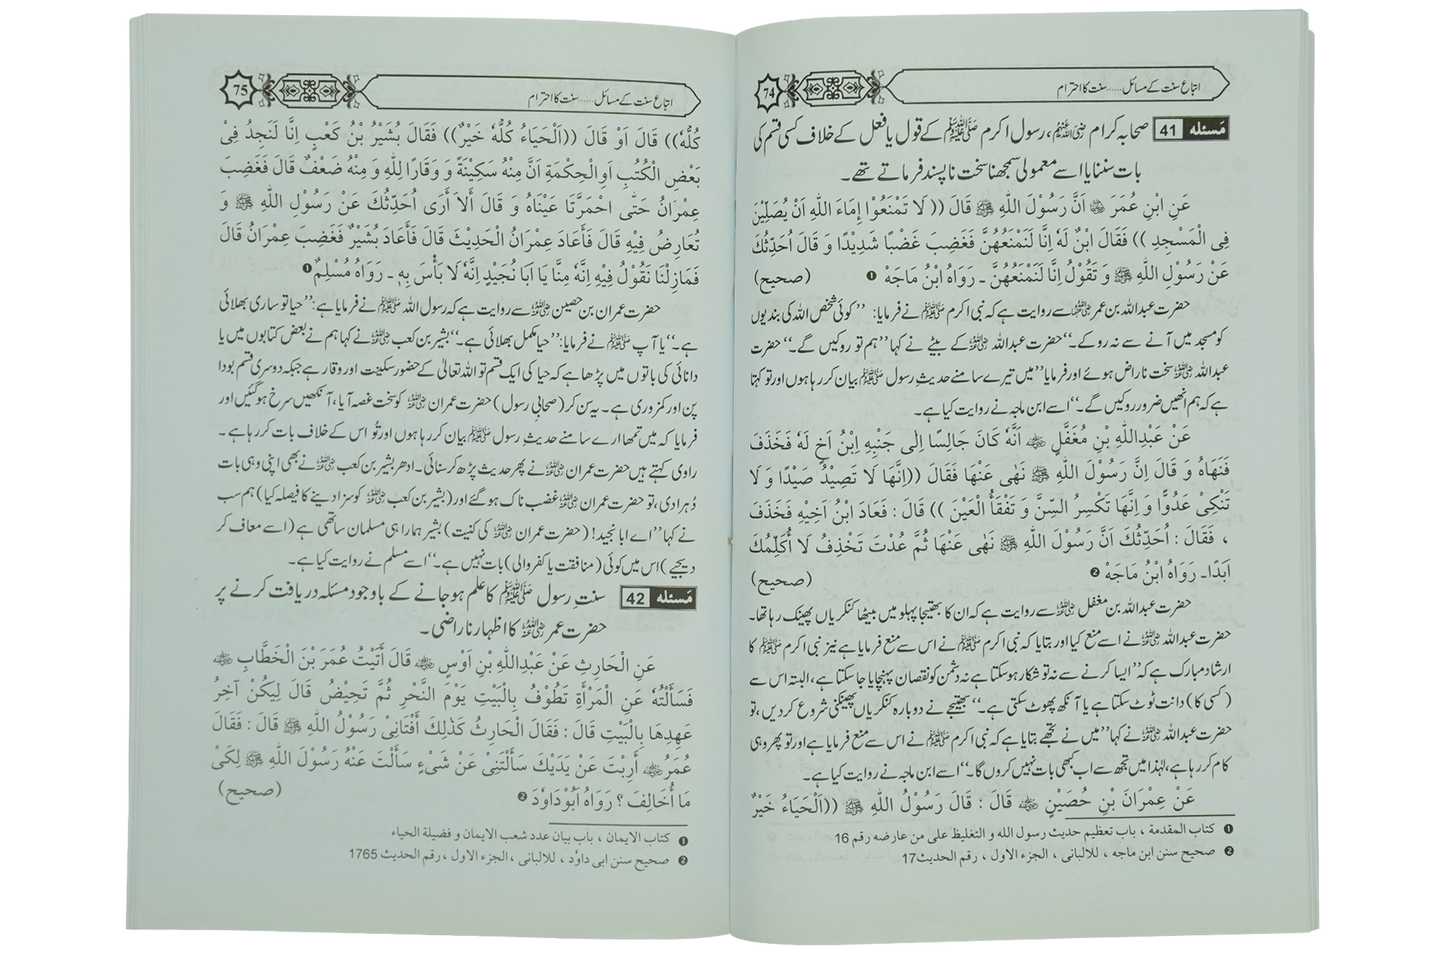 74
اتباع سنت کے مسائل......سنت کا احترام
مَسئلہ 41 صحابہ کرام رضی اللہ عنہم، رسول اکرم ﷺ کے قول یا فعل کے خلاف کسی قسم کی
بات سننا یا اسے معمولی سمجھنا سخت نا پسند فرماتے تھے۔
عَنِ ابْنِ عُمَرَ ؓ اَنَّ رَسُوْلَ اللّٰهِ ﷺ قَالَ (( لَا تَمْنَعُوْا إِمَاءَ اللّٰهِ اَنْ يُصَلِّيْنَ
فِى الْمَسْجِدِ )) فَقَالَ ابْنٌ لَهٗ اِنَّا لَنَمْنَعُهُنَّ فَغَضِبَ غَضْبًا شَدِيْدًا وَ قَالَ اُحَدِّثُكَ
عَنْ رَسُوْلِ اللّٰهِ ﷺ وَ تَقُوْلُ اِنَّا لَنَمْنَعُهُنَّ ۔ رَوَاهُ ابْنُ مَاجَهْ ❶ (صحیح)
حضرت عبداللہ بن عمر رضی اللہ عنہما سے روایت ہے کہ نبی اکرم ﷺ نے فرمایا: ’’کوئی شخص اللہ کی بندیوں
کو مسجد میں آنے سے نہ روکے۔‘‘ حضرت عبداللہ رضی اللہ عنہ کے بیٹے نے کہا ’’ہم تو روکیں گے۔‘‘ حضرت
عبداللہ رضی اللہ عنہ سخت ناراض ہوئے اور فرمایا ’’میں تیرے سامنے حدیث رسول ﷺ بیان کر رہا ہوں اور تو کہتا
ہے کہ ہم انھیں ضرور روکیں گے۔‘‘ اسے ابن ماجہ نے روایت کیا ہے۔
عَنْ عَبْدِاللّٰهِ بْنِ مُغَفَّلٍ ؓ اَنَّهٗ كَانَ جَالِسًا اِلٰى جَنْبِهٖ اِبْنُ اَخٍ لَهٗ فَخَذَفَ
فَنَهَاهُ وَ قَالَ اِنَّ رَسُوْلَ اللّٰهِ ﷺ نَهٰى عَنْهَا فَقَالَ ((اِنَّهَا لَا تَصِيْدُ صَيْدًا وَ لَا
تَنْكِىْ عَدُوًّا وَ اِنَّهَا تَكْسِرُ السِّنَّ وَ تَفْقَأُ الْعَيْنَ )) قَالَ : فَعَادَ ابْنُ اَخِيْهِ فَخَذَفَ
، فَقَالَ : اُحَدِّثُكَ اَنَّ رَسُوْلَ اللّٰهِ ﷺ نَهٰى عَنْهَا ثُمَّ عُدْتَ تَخْذِفُ لَا اُكَلِّمُكَ
اَبَدًا۔ رَوَاهُ ابْنُ مَاجَهْ ❷ (صحیح)
حضرت عبداللہ بن مغفل رضی اللہ عنہ سے روایت ہے کہ ان کا بھتیجا پہلو میں بیٹھا کنکریاں پھینک رہا تھا۔
حضرت عبداللہ رضی اللہ عنہ نے اسے منع کیا اور بتایا کہ نبی اکرم ﷺ نے اس سے منع فرمایا ہے نیز نبی اکرم ﷺ کا
ارشاد مبارک ہے کہ ’’ایسا کرنے سے نہ تو شکار ہو سکتا ہے نہ دشمن کو نقصان پہنچایا جا سکتا ہے، البتہ اس سے
(کسی کا) دانت ٹوٹ سکتا ہے یا آنکھ پھوٹ سکتی ہے۔‘‘ بھتیجے نے دوبارہ کنکریاں پھینکنی شروع کر دیں، تو
حضرت عبداللہ رضی اللہ عنہ نے کہا ’’میں نے تجھے بتایا ہے کہ نبی اکرم ﷺ نے اس سے منع فرمایا ہے اور تو پھر وہی
کام کر رہا ہے، لہٰذا میں تجھ سے اب کبھی بات نہیں کروں گا۔‘‘ اسے ابن ماجہ نے روایت کیا ہے۔
عَنْ عِمْرَانَ بْنِ حُصَيْنٍ ؓ قَالَ : قَالَ رَسُوْلُ اللّٰهِ ﷺ ((اَلْحَيَاءُ خَيْرٌ
❶ کتاب المقدمة ، باب تعظیم حدیث رسول الله و التغلیظ علی من عارضه رقم 16
❷ صحیح سنن ابن ماجه ، للالبانی ، الجزء الاول ، رقم الحدیث17
75
اتباع سنت کے مسائل......سنت کا احترام
كُلُّهٗ)) قَالَ اَوْ قَالَ ((اَلْحَيَاءُ كُلُّهٗ خَيْرٌ)) فَقَالَ بُشَيْرُ بْنُ كَعْبٍ اِنَّا لَنَجِدُ فِىْ
بَعْضِ الْكُتُبِ اَوِالْحِكْمَةِ اَنَّ مِنْهُ سَكِيْنَةً وَ وَقَارًا لِلّٰهِ وَ مِنْهُ ضَعْفٌ قَالَ فَغَضِبَ
عِمْرَانُ حَتّٰى احْمَرَّتَا عَيْنَاهُ وَ قَالَ أَلَا أَرٰى اُحَدِّثُكَ عَنْ رَسُوْلِ اللّٰهِ ﷺ وَ
تُعَارِضُ فِيْهِ قَالَ فَأَعَادَ عِمْرَانُ الْحَدِيْثَ قَالَ فَأَعَادَ بُشَيْرٌ فَغَضِبَ عِمْرَانُ قَالَ
فَمَازِلْنَا نَقُوْلُ فِيْهِ اِنَّهٗ مِنَّا يَا اَبَا نُجَيْدٍ اِنَّهٗ لَا بَأْسَ بِهٖ ۔ رَوَاهُ مُسْلِمٌ ❶
حضرت عمران بن حصین رضی اللہ عنہ سے روایت ہے کہ رسول اللہ ﷺ نے فرمایا ہے: ’’حیا تو ساری بھلائی
ہے۔‘‘ یا آپ ﷺ نے فرمایا: ’’حیا مکمل بھلائی ہے۔‘‘ بشیر بن کعب رضی اللہ عنہ نے کہا ہم نے بعض کتابوں میں یا
دانائی کی باتوں میں پڑھا ہے کہ حیا کی ایک قسم تو اللہ تعالیٰ کے حضور سکینت اور وقار ہے جبکہ دوسری قسم بودا
پن اور کمزوری ہے۔ یہ سن کر (صحابیِ رسول) حضرت عمران رضی اللہ عنہ کو سخت غصہ آیا، آنکھیں سرخ ہو گئیں اور
فرمایا کہ میں تمھارے سامنے حدیثِ رسول ﷺ بیان کر رہا ہوں اور تُو اس کے خلاف بات کر رہا ہے۔
راوی کہتے ہیں حضرت عمران رضی اللہ عنہ نے پھر حدیث پڑھ کر سنائی۔ ادھر بشیر بن کعب رضی اللہ عنہ نے بھی اپنی وہی بات
دُہرا دی، تو حضرت عمران رضی اللہ عنہ غضب ناک ہو گئے اور (بشیر بن کعب رضی اللہ عنہ کو سزا دینے کا فیصلہ کیا) ہم سب
نے کہا ’’اے ابا نجید! (حضرت عمران رضی اللہ عنہ کی کنیت) بشیر ہمارا ہی مسلمان ساتھی ہے (اسے معاف کر
دیجیے) اس میں کوئی (منافقت یا کفر والی) بات نہیں ہے۔‘‘ اسے مسلم نے روایت کیا ہے۔
مَسئلہ 42 سنتِ رسول ﷺ کا علم ہو جانے کے باوجود مسئلہ دریافت کرنے پر
حضرت عمر رضی اللہ عنہ کا اظہار ناراضی۔
عَنِ الْحَارِثِ عَنْ عَبْدِاللّٰهِ بْنِ اَوْسٍ ؓ قَالَ أَتَيْتُ عُمَرَ بْنَ الْخَطَّابِ ؓ
فَسَأَلْتُهٗ عَنِ الْمَرْأَةِ تَطُوْفُ بِالْبَيْتِ يَوْمَ النَّحْرِ ثُمَّ تَحِيْضُ قَالَ لِيَكُنْ آخِرُ
عَهْدِهَا بِالْبَيْتِ قَالَ : فَقَالَ الْحَارِثُ كَذٰلِكَ أَفْتَانِىْ رَسُوْلُ اللّٰهِ ﷺ قَالَ : فَقَالَ
عُمَرُ ؓ أَرِبْتَ عَنْ يَدَيْكَ سَأَلْتَنِىْ عَنْ شَىْءٍ سَأَلْتَ عَنْهُ رَسُوْلَ اللّٰهِ ﷺ لِكَىْ
مَا أُخَالِفَ ؟ رَوَاهُ اَبُوْدَاوٗدَ ❷ (صحیح)
❶ کتاب الایمان ، باب بیان عدد شعب الایمان و فضیلة الحیاء
❷ صحیح سنن ابی داوٗد ، للالبانی ، الجزء الاول ، رقم الحدیث 1765